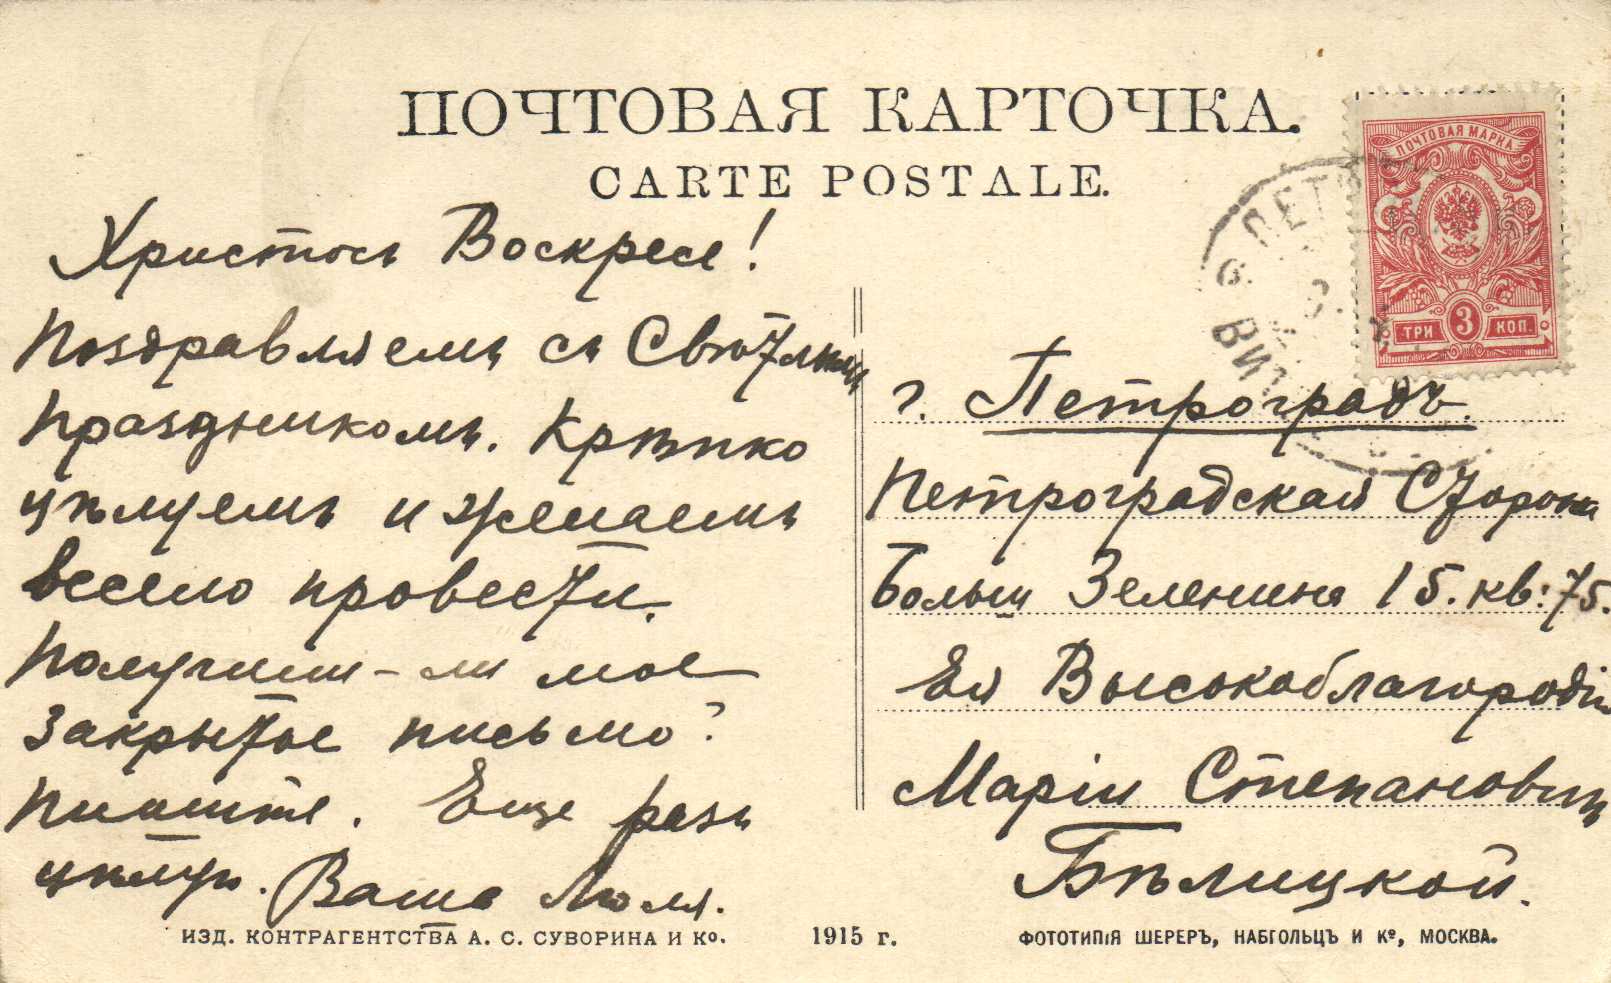 ПОЧТОВАЯ КАРТОЧКА.
CARTE POSTALE.
ПОЧТОВАЯ МАРКА
ТРИ 3 КОП.
Христосъ Воскресе!
Поздравляемъ съ Свѣтлымъ
Праздникомъ. Крѣпко
цѣлуемъ и желаемъ
весело провести.
Получили-ли мое
закрытое письмо?
Пишите. Еще разъ
цѣлую. Ваша Люля.
г. Петроградъ.
Петроградская Сторона
Больш Зеленина 15. кв: 75.
Ея Высокоблагородію
Маріи Степановнѣ
Бѣлицкой.
ИЗД. КОНТРАГЕНТСТВА А. С. СУВОРИНА И Ко.
1915 г.
ФОТОТИПІЯ ШЕРЕРЪ, НАБГОЛЬЦЪ И Ко, МОСКВА.